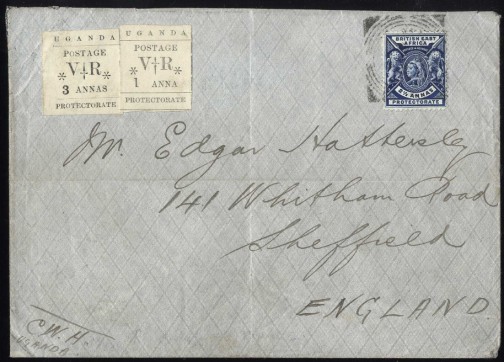 UGANDA
POSTAGE
V R
3 ANNAS
PROTECTORATE
UGANDA
POSTAGE
V R
1 ANNA
PROTECTORATE
BRITISH EAST
AFRICA
ANNAS
PROTECTORATE
Mr. Edgar Hattersley
141 Whitham Road
Sheffield
ENGLAND.
C.W.H.
UGANDA.